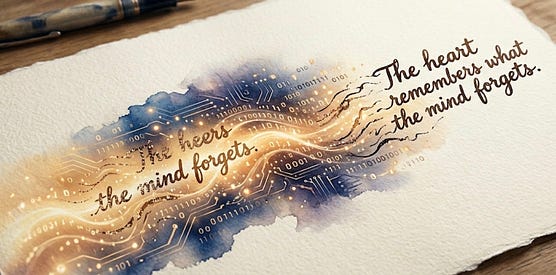 The heers
the mind forgets.
The heart
remembers what
the mind forgets.